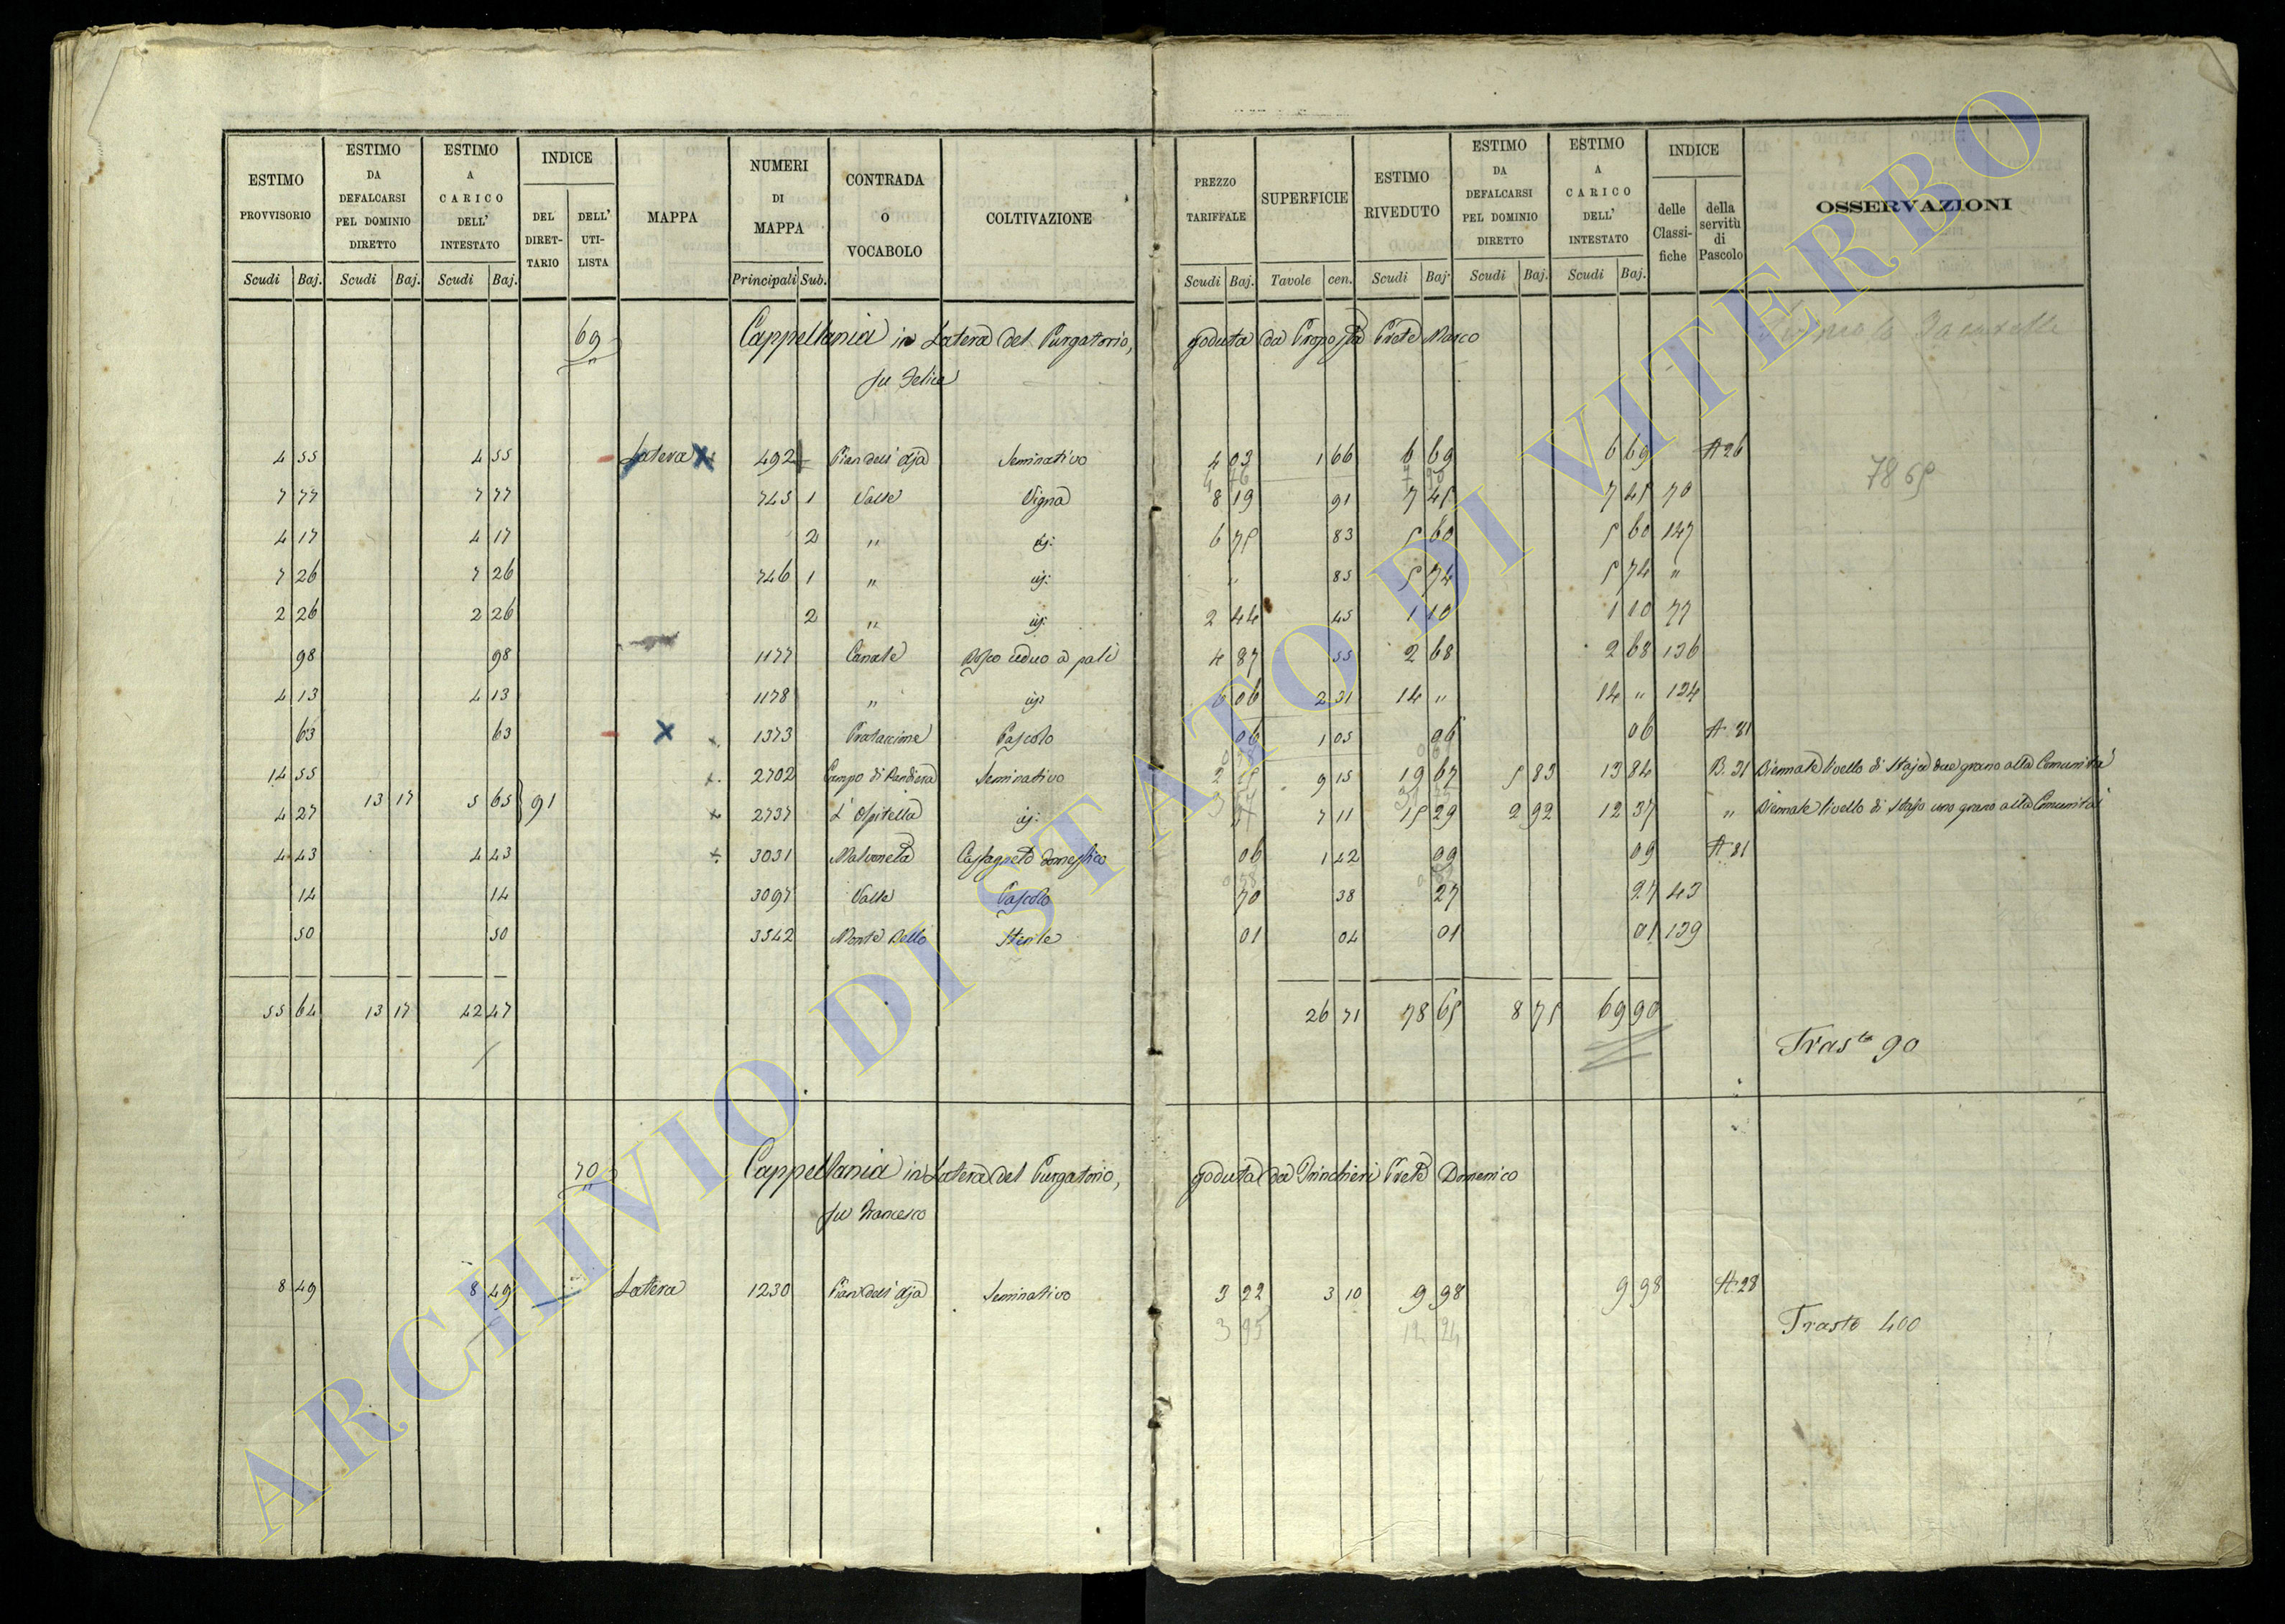 ESTIMO PROVVISORIO | ESTIMO DA DEFALCARSI PEL DOMINIO DIRETTO | ESTIMO A CARICO DELL' INTESTATO | INDICE DEL DIRETTARIO | DELL' UTILISTA | MAPPA | NUMERI DI MAPPA | CONTRADA O VOCABOLO | COLTIVAZIONE | PREZZO TARIFFALE | SUPERFICIE | ESTIMO RIVEDUTO | ESTIMO DA DEFALCARSI PEL DOMINIO DIRETTO | ESTIMO A CARICO DELL' INTESTATO | INDICE delle Classifiche | della servitù di Pascolo | OSSERVAZIONI
Scudi Baj. Scudi Baj. Scudi Baj. Principali Sub. Scudi Baj. Tavole cen. Scudi Baj. Scudi Baj. Scudi Baj.
69 Cappellania in Latera del Purgatorio, goduta da Proposta Prete Marco
fu Felice
4 55 4 55 Latera X 492 Pian dell' Aja Seminativo 4 03 1 66 6 69 6 69 A 26
78 65
7 77 7 77 745 1 Valle Vigna 8 19 91 7 45 7 45 70
4 17 4 17 2 " id: 6 75 83 5 60 5 60 147
7 26 7 26 746 1 " id: " 85 5 74 5 74 "
2 26 2 26 2 " id: 2 44 45 1 10 1 10 77
98 98 1177 Canale Bosco ceduo a pali 4 87 55 2 68 2 68 136
4 13 4 13 1178 " id: 6 06 2 31 14 " 14 " 124
63 63 X 1373 Prataccione Pascolo 06 1 05 06 06 A 81
14 55 2702 Campo di Bandiera Seminativo 2 15 9 15 19 67 5 83 13 84 B. 31 Biennale livello di Staja due grano alla Comunità
13 17 5 65 91
4 27 2737 L' Ospitella id: " 7 11 15 29 2 92 12 37 " Biennale livello di Stajo uno grano alla Comunità
4 43 4 43 3031 Malvoneta Castagneto domestico 06 1 42 09 09 A 81
14 14 3097 Valle Pascolo 70 38 27 27 43
50 50 3542 Monte Bello Sterile 01 04 01 01 139
55 64 13 17 42 47 26 71 78 65 8 75 69 90
Trasto 90
70 Cappellania in Latera del Purgatorio, goduta da Trinchieri Prete Domenico
fu Francesco
8 49 8 49 Latera 1230 Pian dell' Aja Seminativo 3 22 3 10 9 98 9 98 A 28
3 95 12 24
Trasto 400
ARCHIVIO DI STATO DI VITERBO